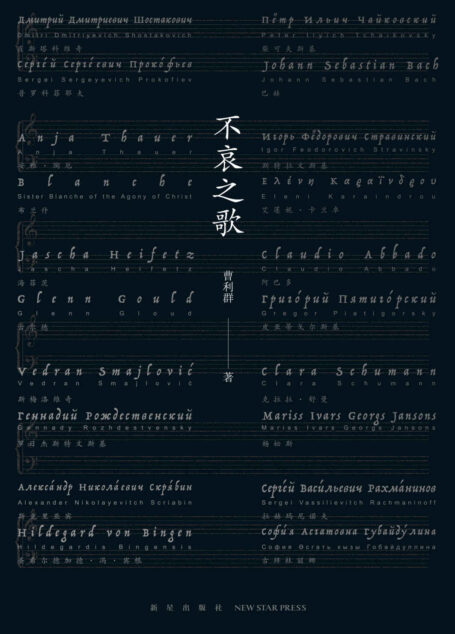 Дмитрий Дмитриевич Шостакович
Dmitri Dmitriyevich Shostakovich
肖斯塔科维奇
Сергей Сергеевич Прокофьев
Sergei Sergeyevich Prokofiev
普罗科菲耶夫
Anja Thauer
Anja Thauer
安雅·陶尔
Blanche
Sister Blanche of the Agony of Christ
布兰丹
Jascha Heifetz
Jascha Heifetz
海菲茨
Glenn Gould
Glenn Gloud
古尔德
Vedran Smajlović
Vedran Smajlović
斯梅洛维奇
Геннадий Рождественский
Gennady Rozhdestvensky
罗日杰斯特文斯基
Алекса́ндр Никола́евич Скря́бин
Alexander Nikolayevitch Scriabin
斯克里亚宾
Hildegard von Bingen
Hildegardis Bingensis
圣希尔德加德·冯·宾根
不哀之歌
曹利群
著
Пётр Ильич Чайковский
Peter Ilyich Tchaikovsky
柴可夫斯基
Johann Sebastian Bach
Johann Sebastian Bach
巴赫
Игорь Фёдорович Стравинский
Igor Feodorovich Stravinsky
斯特拉文斯基
Ελένη Καραΐνδρου
Eleni Karaindrou
艾莲妮·卡兰卓
Claudio Abbado
Claudio Abbado
阿巴多
Григо́рий Пятиго́рский
Gregor Piatigorsky
皮亚蒂戈尔斯基
Clara Schumann
Clara Schumann
克拉拉·舒曼
Mariss Ivars Georgs Jansons
Mariss Ivars Georgs Jansons
杨松斯
Серге́й Васи́льевич Рахма́нинов
Sergei Vassilievitch Rachmaninoff
拉赫玛尼诺夫
Софи́я Асгатовна Губайду́лина
София Әсгать кызы Гобәйдуллина
古拜杜丽娜
新星出版社 NEW STAR PRESS